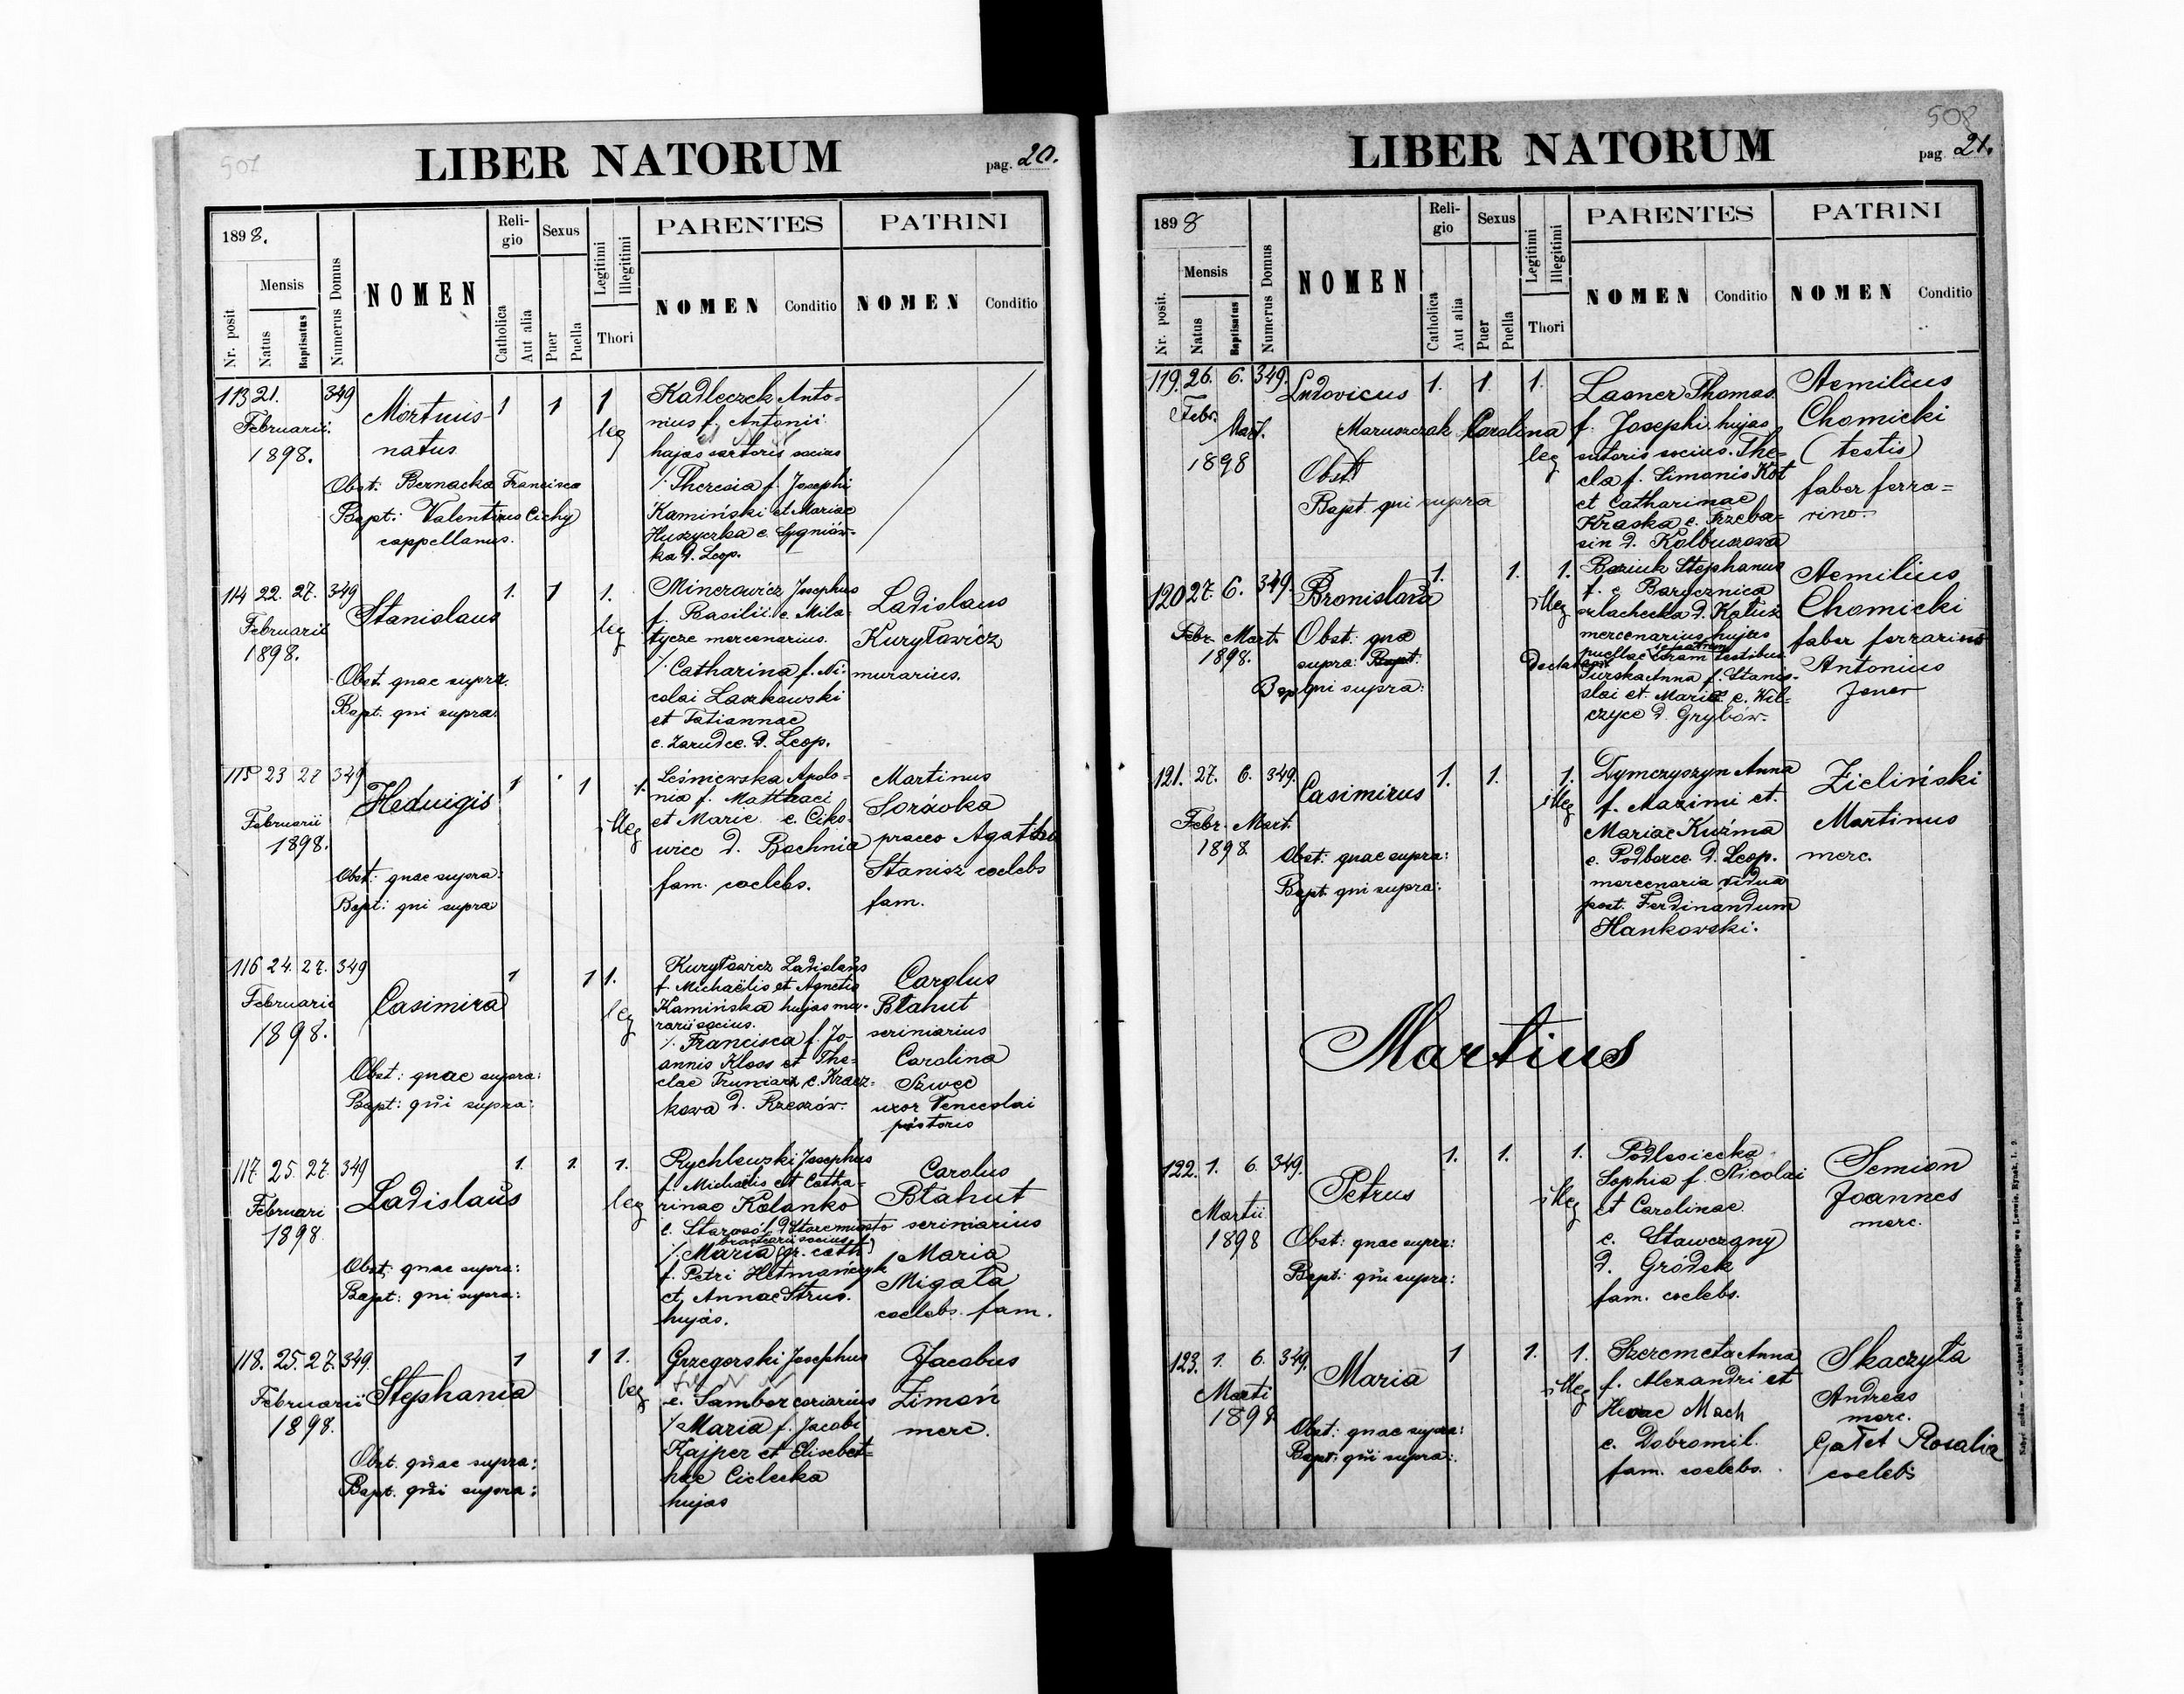 507
LIBER NATORUM
pag. 20.
1898.
Nr. posit
Mensis
Natus
Baptisatus
Numerus Domus
NOMEN
Reli-
gio
Catholica
Aut alia
Sexus
Puer
Puella
Legitimi
Illegitimi
Thori
PARENTES
NOMEN
Conditio
PATRINI
NOMEN
Conditio
113 21. 349
Februarii.
1898.
Mortuus
natus
1 1 1
leg
Obst: Bernacka Francisca
Bapt: Valentinus Cichy
cappellanus.
Kadleczek Anto-
nius f. Antonii
hujas sartoris socius
/. Theresia f. Josephi
Kamiński et Mariae
Huszyczka e. Sygniów-
ka d. Leop.
114 22. 27. 349
Februarii
1898.
Stanislaus
1. 1 1.
leg
Obst. quae supra.
Bapt: qui supra:
Minerowicz Josephus
f. Basilii e. Mila-
tycze mercenarius.
/. Catharina f. Ni-
colai Laszkowski
et Tatiannae
e. Zarudce. d. Leop.
Ladislaus
Kuryłowicz
murarius.
115 23 27 349
Februarii
1898.
Heduigis
1 1 1.
illeg
Obst: quae supra:
Bapt: qui supra
Leśniewska Apolo-
nia f. Matthaei
et Marie e. Ciko-
wice d. Bochnia
fam. coelebs.
Martinus
Sorówka
praeco Agatha
Stanisz coelebs
fam.
116 24. 27. 349
Februarii
1898.
Casimira
1 1 1.
leg
Obst: quae supra:
Bapt: qui supra:
Kuryłowicz Ladislaus
f. Michaëlis et Agnetis
Kamińska hujas mu-
rarii socius.
/. Francisca f. Jo-
annis Kloos et The-
clae Truniarz e. Kracz-
kowa d. Rzeszów.
Carolus
Błahut
scriniarius
Carolina
Szwec
uxor Venceslai
pistoris
117. 25. 27. 349
Februari
1898
Ladislaus
1. 1. 1.
leg
Obst: quae supra:
Bapt: qui supra:
Rychlewski Josephus
f. Michaëlis et Catha-
rinae Kolanko
e. Starasól d. Staremiasto
bractearii socius
/. Maria (gr. cath)
f. Petri Hetmańczyk
et Annae Strus.
hujas.
Carolus
Błahut
scriniarius
Maria
Migała
coelebs. fam.
118. 25. 27. 349.
Februarii
1898.
Stephania
1 1 1.
leg
Obst. quae supra:
Bapt. qui supra:
Grzegorski Josephus
e. Sambor coriarius
/. Maria f. Jacobi
Kajper et Elisabet-
hae Cielecka
hujas
Jacobus
Zimoń
merc.
508
LIBER NATORUM
pag. 21.
1898
Nr. posit.
Mensis
Natus
Baptisatus
Numerus Domus
NOMEN
Reli-
gio
Catholica
Aut alia
Sexus
Puer
Puella
Legitimi
Illegitimi
Thori
PARENTES
NOMEN
Conditio
PATRINI
NOMEN
Conditio
119. 26. 6. 349.
Febr.
Mart.
1898
Ludovicus
1. 1. 1.
leg
Maruszczak Carolina
Obst.
Bapt. qui supra
Lasner Thomas
f. Josephi hujas
sutoris socius. The-
cla f. Simonis Kot
et Catharinae
Kraska e. Trzeba-
sin d. Kolbuszowa
Aemilius
Chomicki
(testis)
faber ferra-
rino.
120 27. 6. 349.
Febr. Mart.
1898.
Bronislava
1. 1. 1.
illeg
Obst: quae
supra: Bapt.
Bapt qui supra:
Baziuk Stephanus
f. e Barycznica
szlachecka d. Kałusz
mercenarius hujas
puellae se patrem
declarans coram testibus
Gurska Anna f. Stanis-
slai et Mariae e. Wil-
czyce d. Grybów.
Aemilius
Chomicki
faber ferrarius
Antonius
Jener
121. 27. 6. 349.
Febr. Mart.
1898.
Casimirus
1. 1. 1.
illeg
Obst: quae supra:
Bapt qui supra:
Dymczyszyn Anna
f. Maximi et
Mariae Kuźma
e. Podborce d. Leop.
mercenaria vidua
post. Ferdinandum
Hankowski.
Zieliński
Martinus
merc.
Martius
122. 1. 6. 349.
Martii
1898
Petrus
1. 1. 1.
illeg
Obst: quae supra:
Bapt: qui supra:
Podlesiecka
Sophia f. Nicolai
et Carolinae
e. Stawczany
d. Gródek
fam. coelebs.
Semion
Joannes
merc.
123. 1. 6. 349.
Marti
1898
Maria
1 1. 1.
illeg
Obst: quae supra:
Bapt: qui supra:
Szeremeta Anna
f. Alexandri et
Hevae Mach
e. Dobromil.
fam. coelebs.
Skaczyła
Andreas
merc.
Gałet Rosalia
coelebs